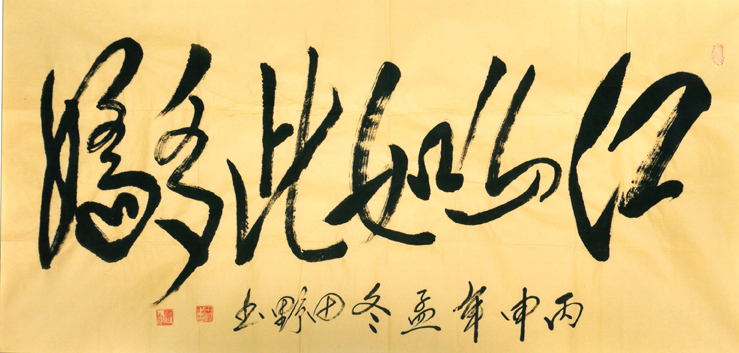 江山如此多嬌
丙申年孟冬田野书